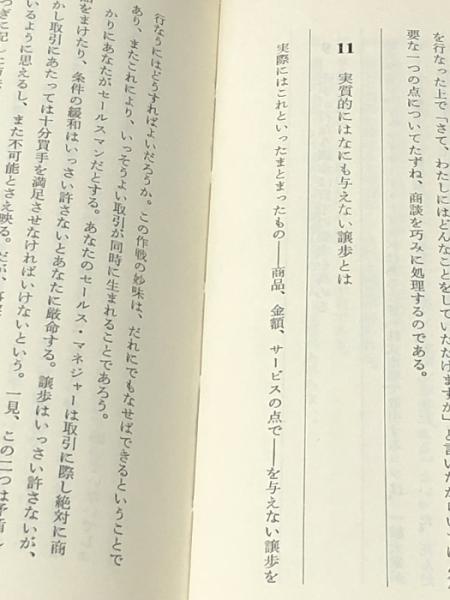 を行なった上で「さて、わたしにはどんなことをしていただけますか」と言いたか
要な一つの点についてたずね、商談を巧みに処理するのである。
11 実質的にはなにも与えない譲歩とは
実際にはこれといったまとまったもの――商品、金額、サービスの点で――を与えない譲歩を
行なうにはどうすればよいだろうか。この作戦の妙味は、だれにでもなせばできるということで
あり、またこれにより、いっそうよい取引が同時に生まれることであろう。
かりにあなたがセールスマンだとする。あなたのセールス・マネジャーは取引に際し絶対に商
をまけたり、条件の緩和はいっさい許さないとあなたに厳命する。譲歩はいっさい許さないが、
かし取引にあたっては十分買手を満足させなければいけないという。一見、この二つは矛盾し
いるように思えるし、また不可能とさえ映る。だが、
つぎに記した